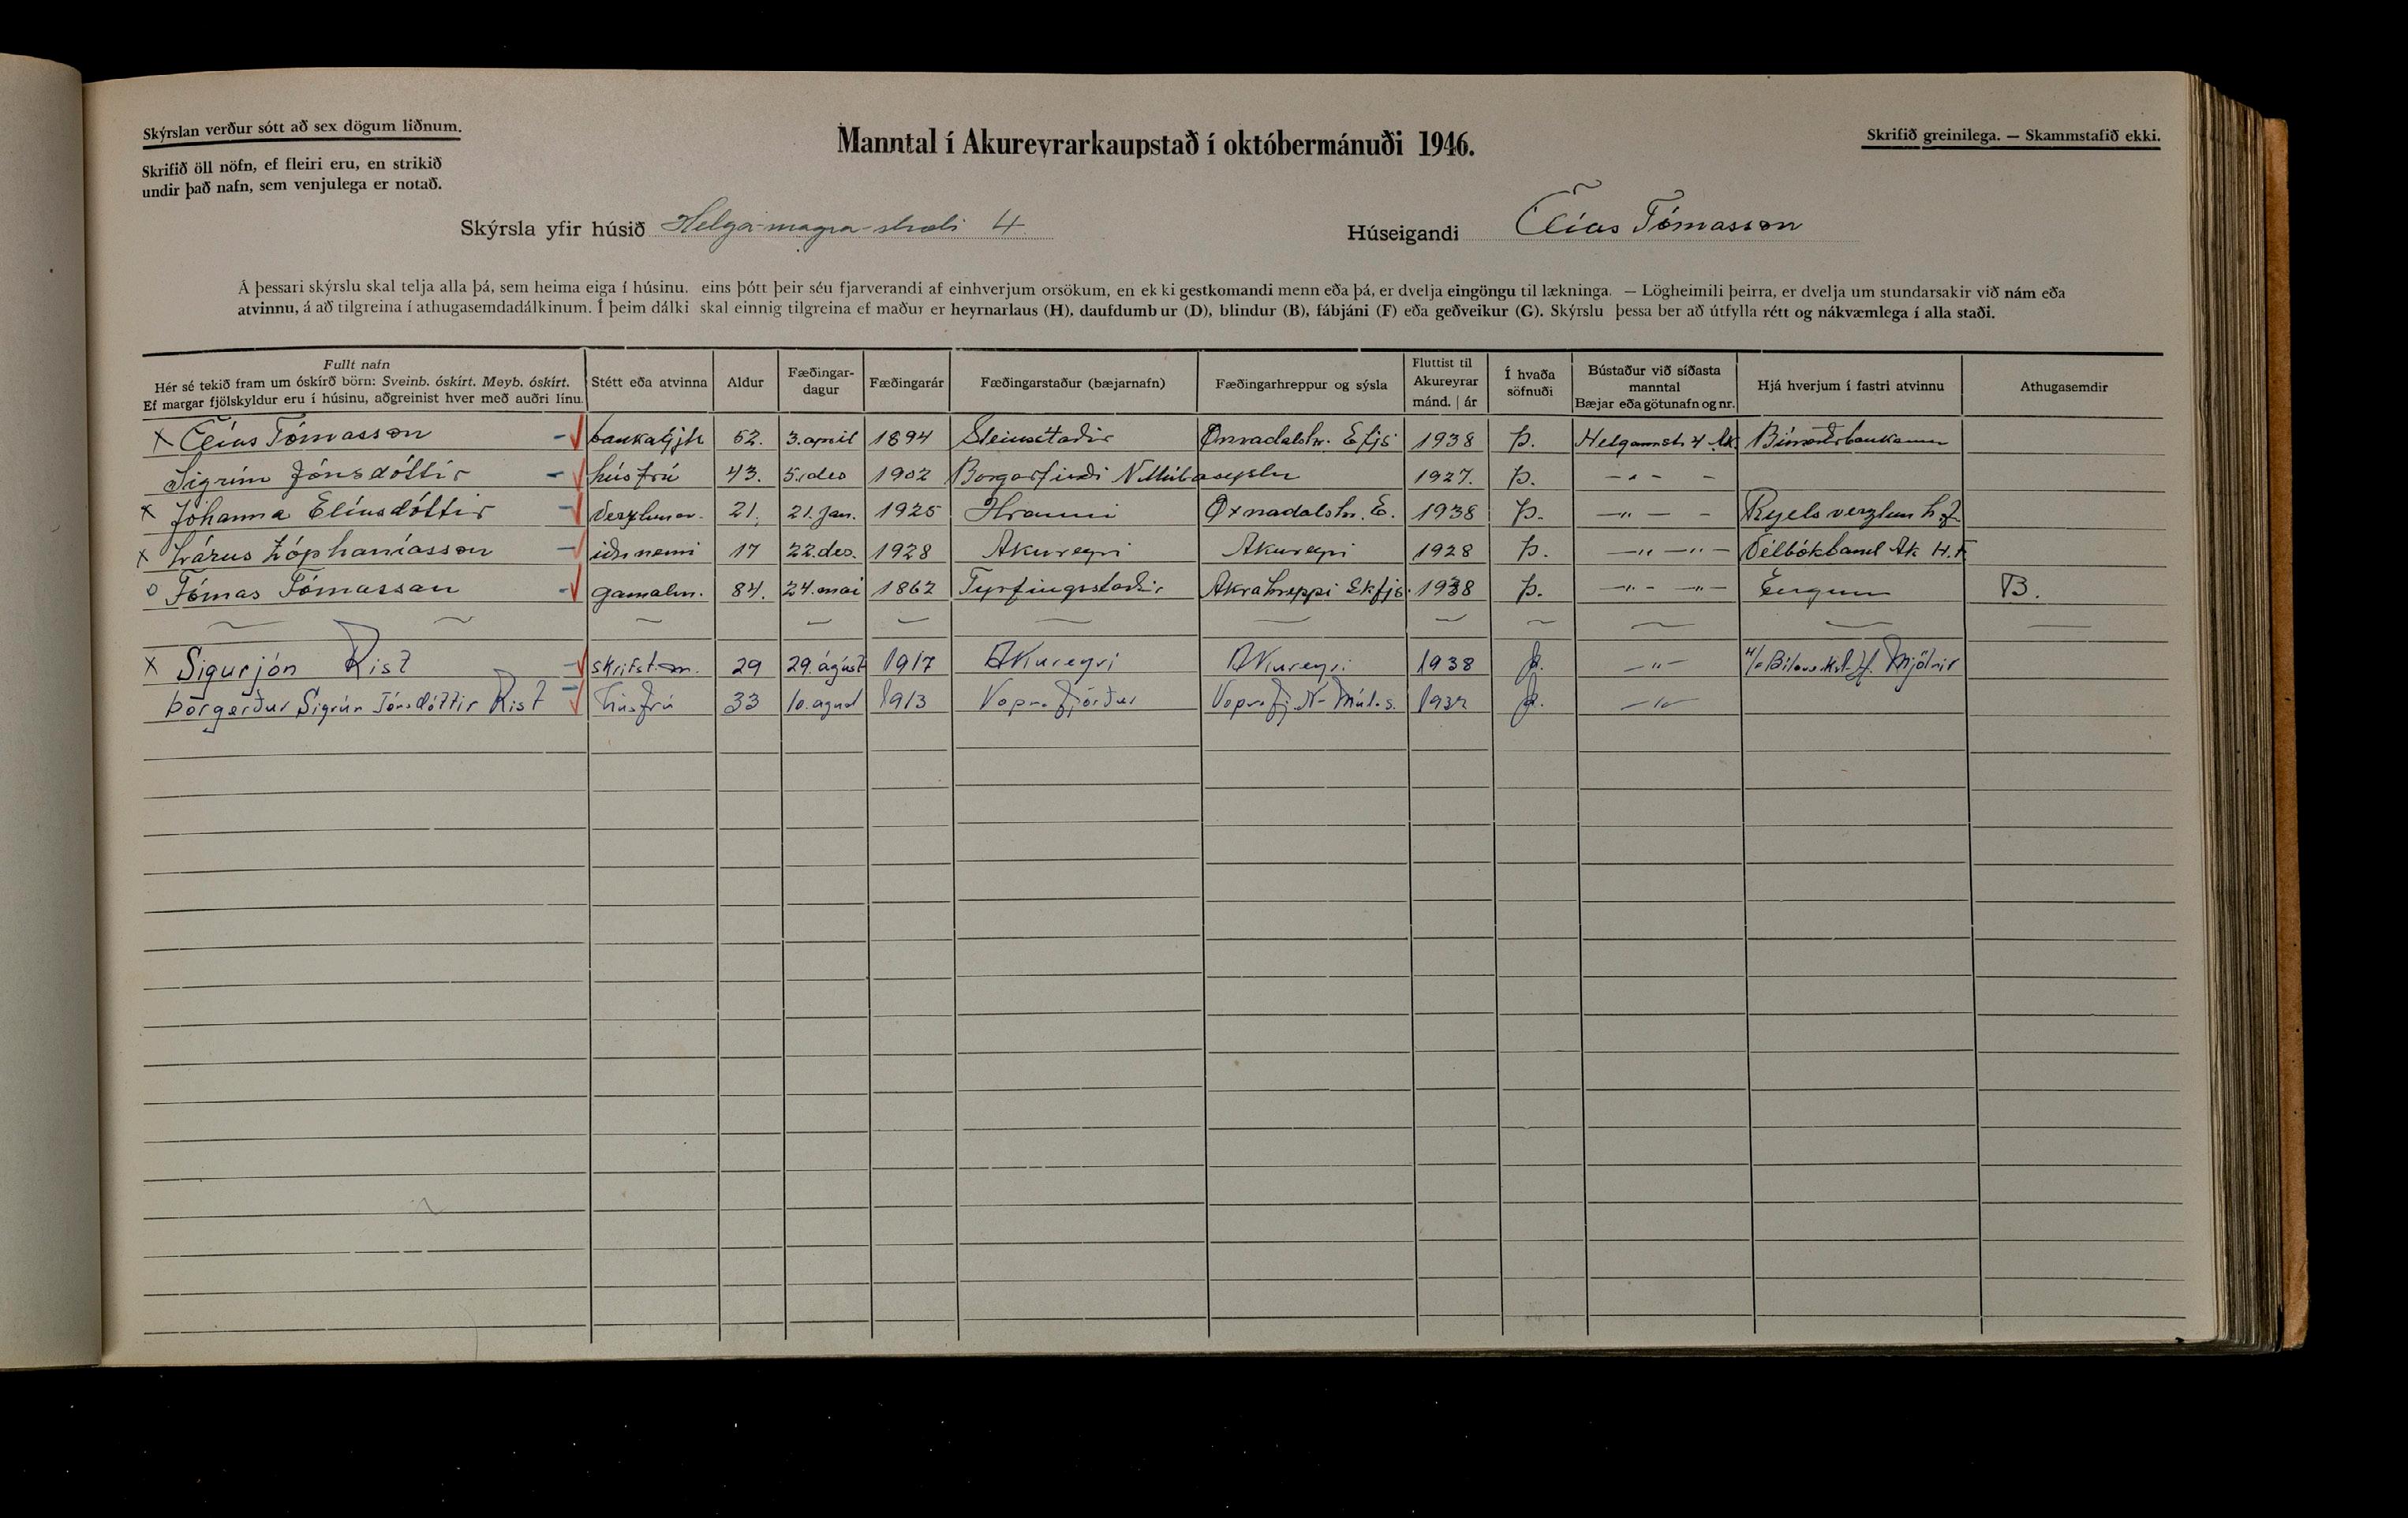 Skýrslan verður sótt að sex dögum liðnum.
Skrifið öll nöfn, ef fleiri eru, en strikið
undir það nafn, sem venjulega er notað.
Manntal í Akureyrarkaupstað í októbermánuði 1946.
Skrifið greinilega. — Skammstafið ekki.
Skýrsla yfir húsið Helga-magra-stræti 4
Húseigandi Elías Tómasson
Á þessari skýrslu skal telja alla þá, sem heima eiga í húsinu, eins þótt þeir séu fjarverandi af einhverjum orsökum, en ekki gestkomandi menn eða þá, er dvelja eingöngu til lækninga. — Lögheimili þeirra, er dvelja um stundarsakir við nám eða
atvinnu, á að tilgreina í athugasemdadálkinum. Í þeim dálki skal einnig tilgreina ef maður er heyrnarlaus (H), daufdumbur (D), blindur (B), fábjáni (F) eða geðveikur (G). Skýrslu þessa ber að útfylla rétt og nákvæmlega í alla staði.
Fullt nafn
Hér sé tekið fram um óskírð börn: Sveinb. óskírt. Meyb. óskírt.
Ef margar fjölskyldur eru í húsinu, aðgreinist hver með auðri línu.
Stétt eða atvinna
Aldur
Fæðingar-
dagur
Fæðingarár
Fæðingarstaður (bæjarnafn)
Fæðingarhreppur og sýsla
Fluttist til
Akureyrar
mánd. | ár
Í hvaða
söfnuði
Bústaður við síðasta
manntal
Bæjar eða götunafn og nr.
Hjá hverjum í fastri atvinnu
Athugasemdir
x Elías Tómasson bankagjk 52. 3. apríl 1894 Steinsstaðir Öxnadalshr. Efjs 1938 Þ. Helgamstr 4 Ak Búnaðarbankanum
Sigrún Jónsdóttir húsfrú 43. 5. des 1902 Borgarfirði N Múlasýslu 1927. Þ. — " —
x Jóhanna Elíasdóttir verzlunar. 21. 21. jan. 1925 Hrauni Öxnadalshr. E. 1938 Þ. — " — Ryels verzlun h.f
x Lárus Zóphaníasson iðnnemi 17 22. des. 1928 Akureyri Akureyri 1928 Þ. — " — " — Vélbókband Ak H.F
o Tómas Tómasson gamalm. 84. 24. maí 1862 Tyrfingsstaðir Akrahreppi Skfjs. 1938 Þ. — " — " — Engum B.
x Sigurjón Rist skrifst.m. 29 29. ágúst 1917 Akureyri Akureyri 1938 Þ. — " — Mjölnir
Þorgerður Sigrún Jónsdóttir Rist húsfrú 33 10. ágúst 1913 Vopnafjörður Vopnafj. N-Múl.s. Þ. — " —